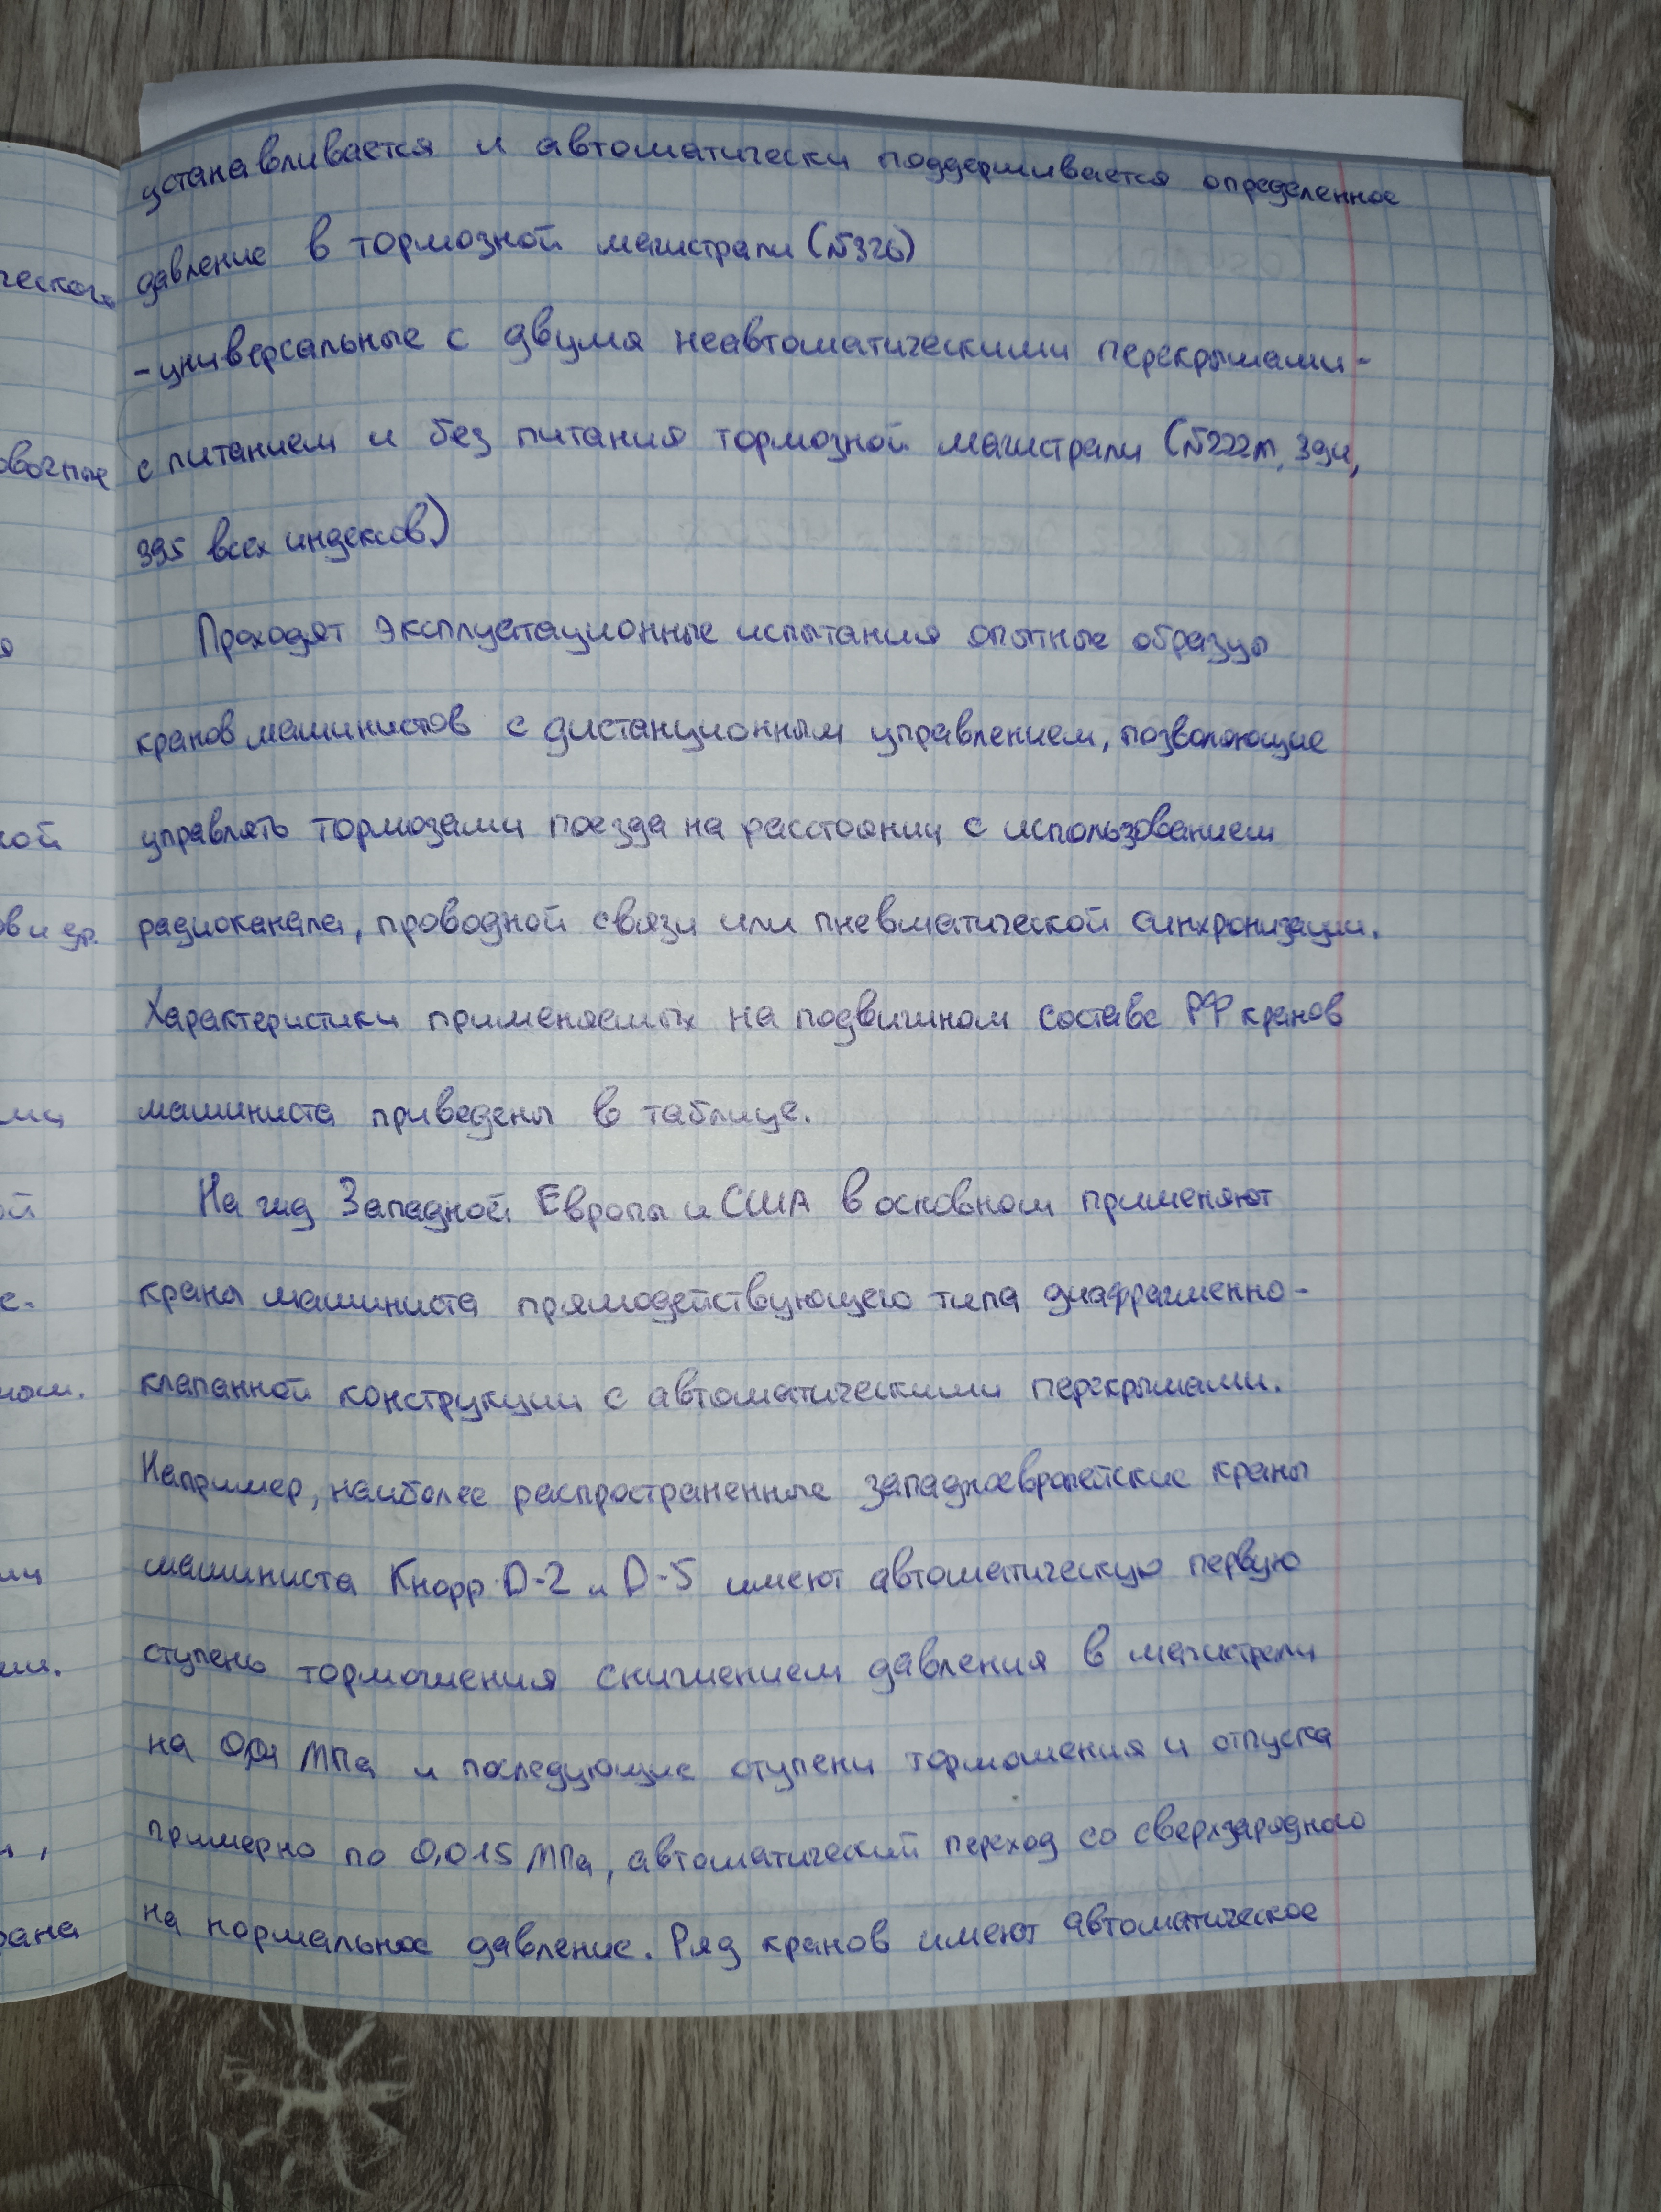 ческого
овочные
я
ной
ов и др.
ми
ой
ном.
рана
устанавливается и автоматически поддерживается определенное
давление в тормозной магистрали (№326)
- универсальные с двумя неавтоматическими перекрышами -
с питанием и без питания тормозной магистрали (№222м, 394,
395 всех индексов)
Проходят эксплуатационные испытания опытные образцы
кранов машинистов с дистанционным управлением, позволяющие
управлять тормозами поезда на расстоянии с использованием
радиоканала, проводной связи или пневматической синхронизации.
Характеристики применяемых на подвижном составе РФ кранов
машиниста приведены в таблице.
На жд Западной Европы и США в основном применяют
краны машиниста прямодействующего типа диафрагменно-
клапанной конструкции с автоматическими перекрышами.
Например, наиболее распространенные западноевропейские краны
машиниста Кнорр D-2 и D-5 имеют автоматическую первую
ступень торможения снижением давления в магистрали
на МПа и последующие ступени торможения и отпуска
примерно по 0,015 МПа, автоматический переход со сверхзарядного
на нормальное давление. Ряд кранов имеют автоматическое